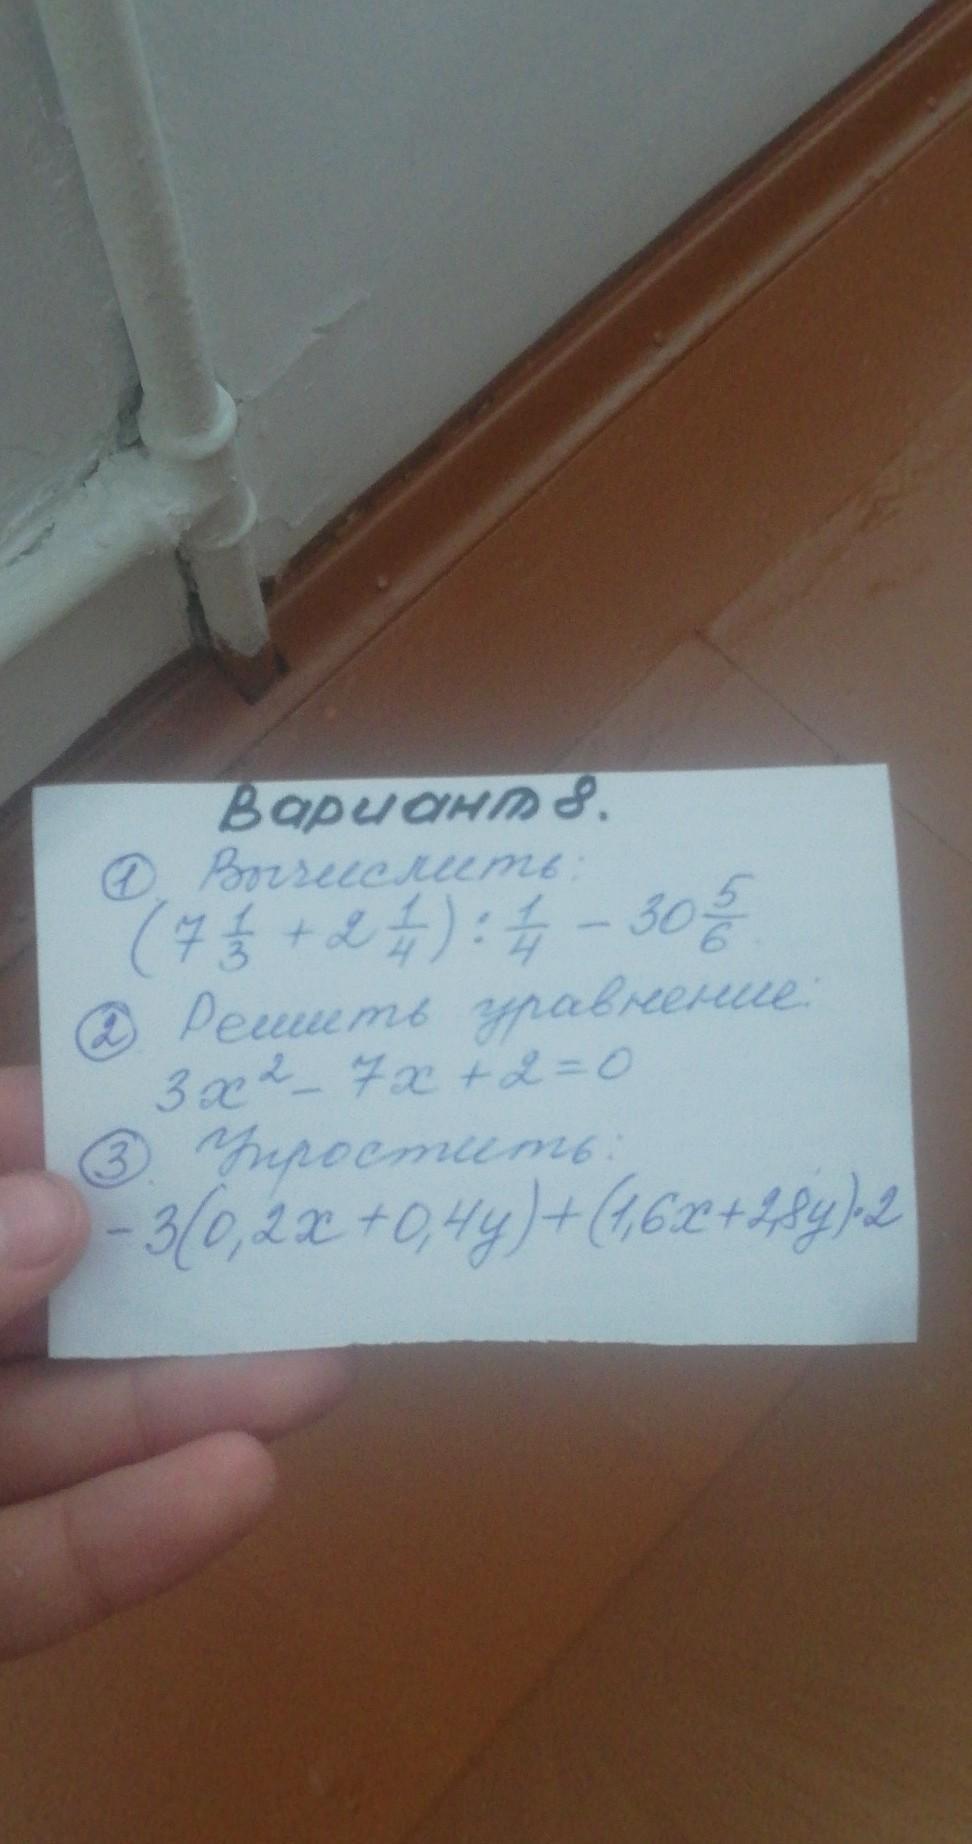 Вариант 8.
① Вычислить:
(7 1/3 + 2 1/4) : 1/4 - 30 5/6
② Решить уравнение:
3x² - 7x + 2 = 0
③ Упростить:
- 3(0,2x + 0,4y) + (1,6x + 2,8y)·2